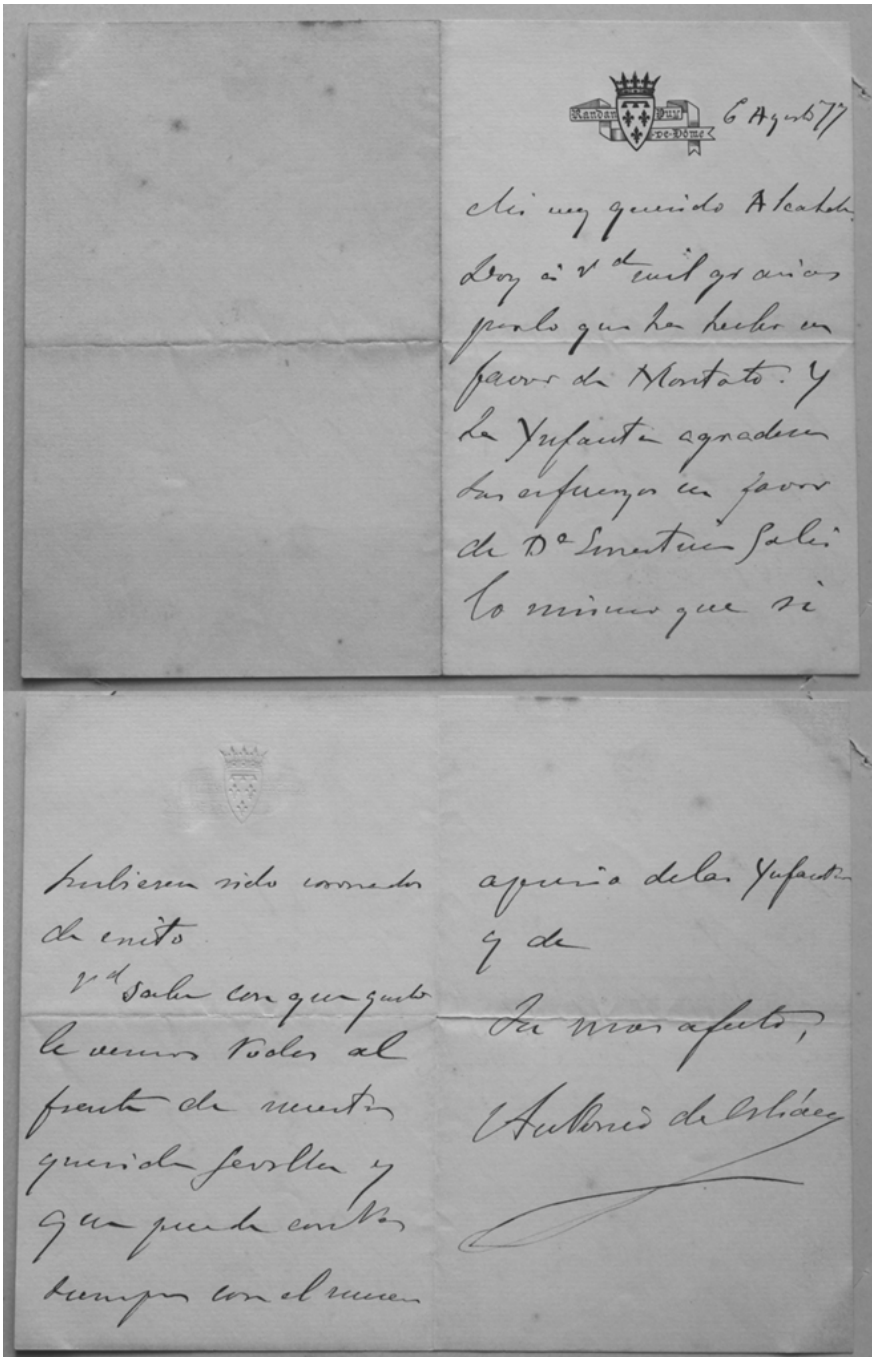 Randan Puy
de-Dôme
6 Agosto 77
Mi muy querido
Doy á Vd mil gracias
por lo que ha hecho en
favor de Y
La Ynfanta agradece
sus esfuerzos en favor
de Dª Ernestina Solis
lo mismo que si
hubiesen sido coronados
de exito.
Vd sabe con que gusto
le vemos todos al
frente de nuestra
querida Sevilla y
que puede contar
siempre con el sincero
aprecio de las Ynfantas
y de
Su mas afecto,
Antonio de Orléans